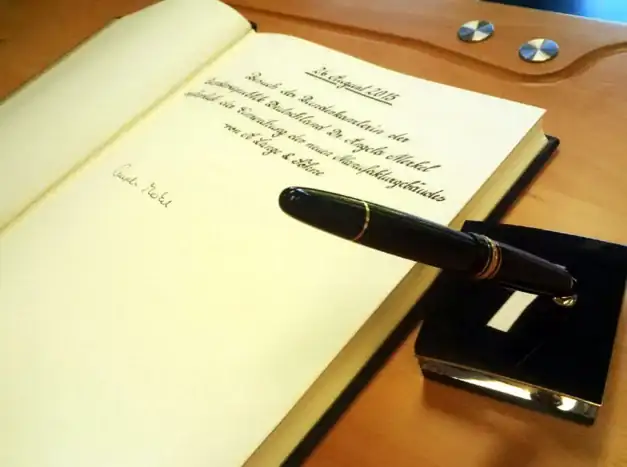 26. August 2015
Besuch der Bundeskanzlerin der
Bundesrepublik Deutschland Dr. Angela Merkel
anläßlich der Einweihung des neuen Manufakturgebäudes
von A. Lange & Söhne
Angela Merkel